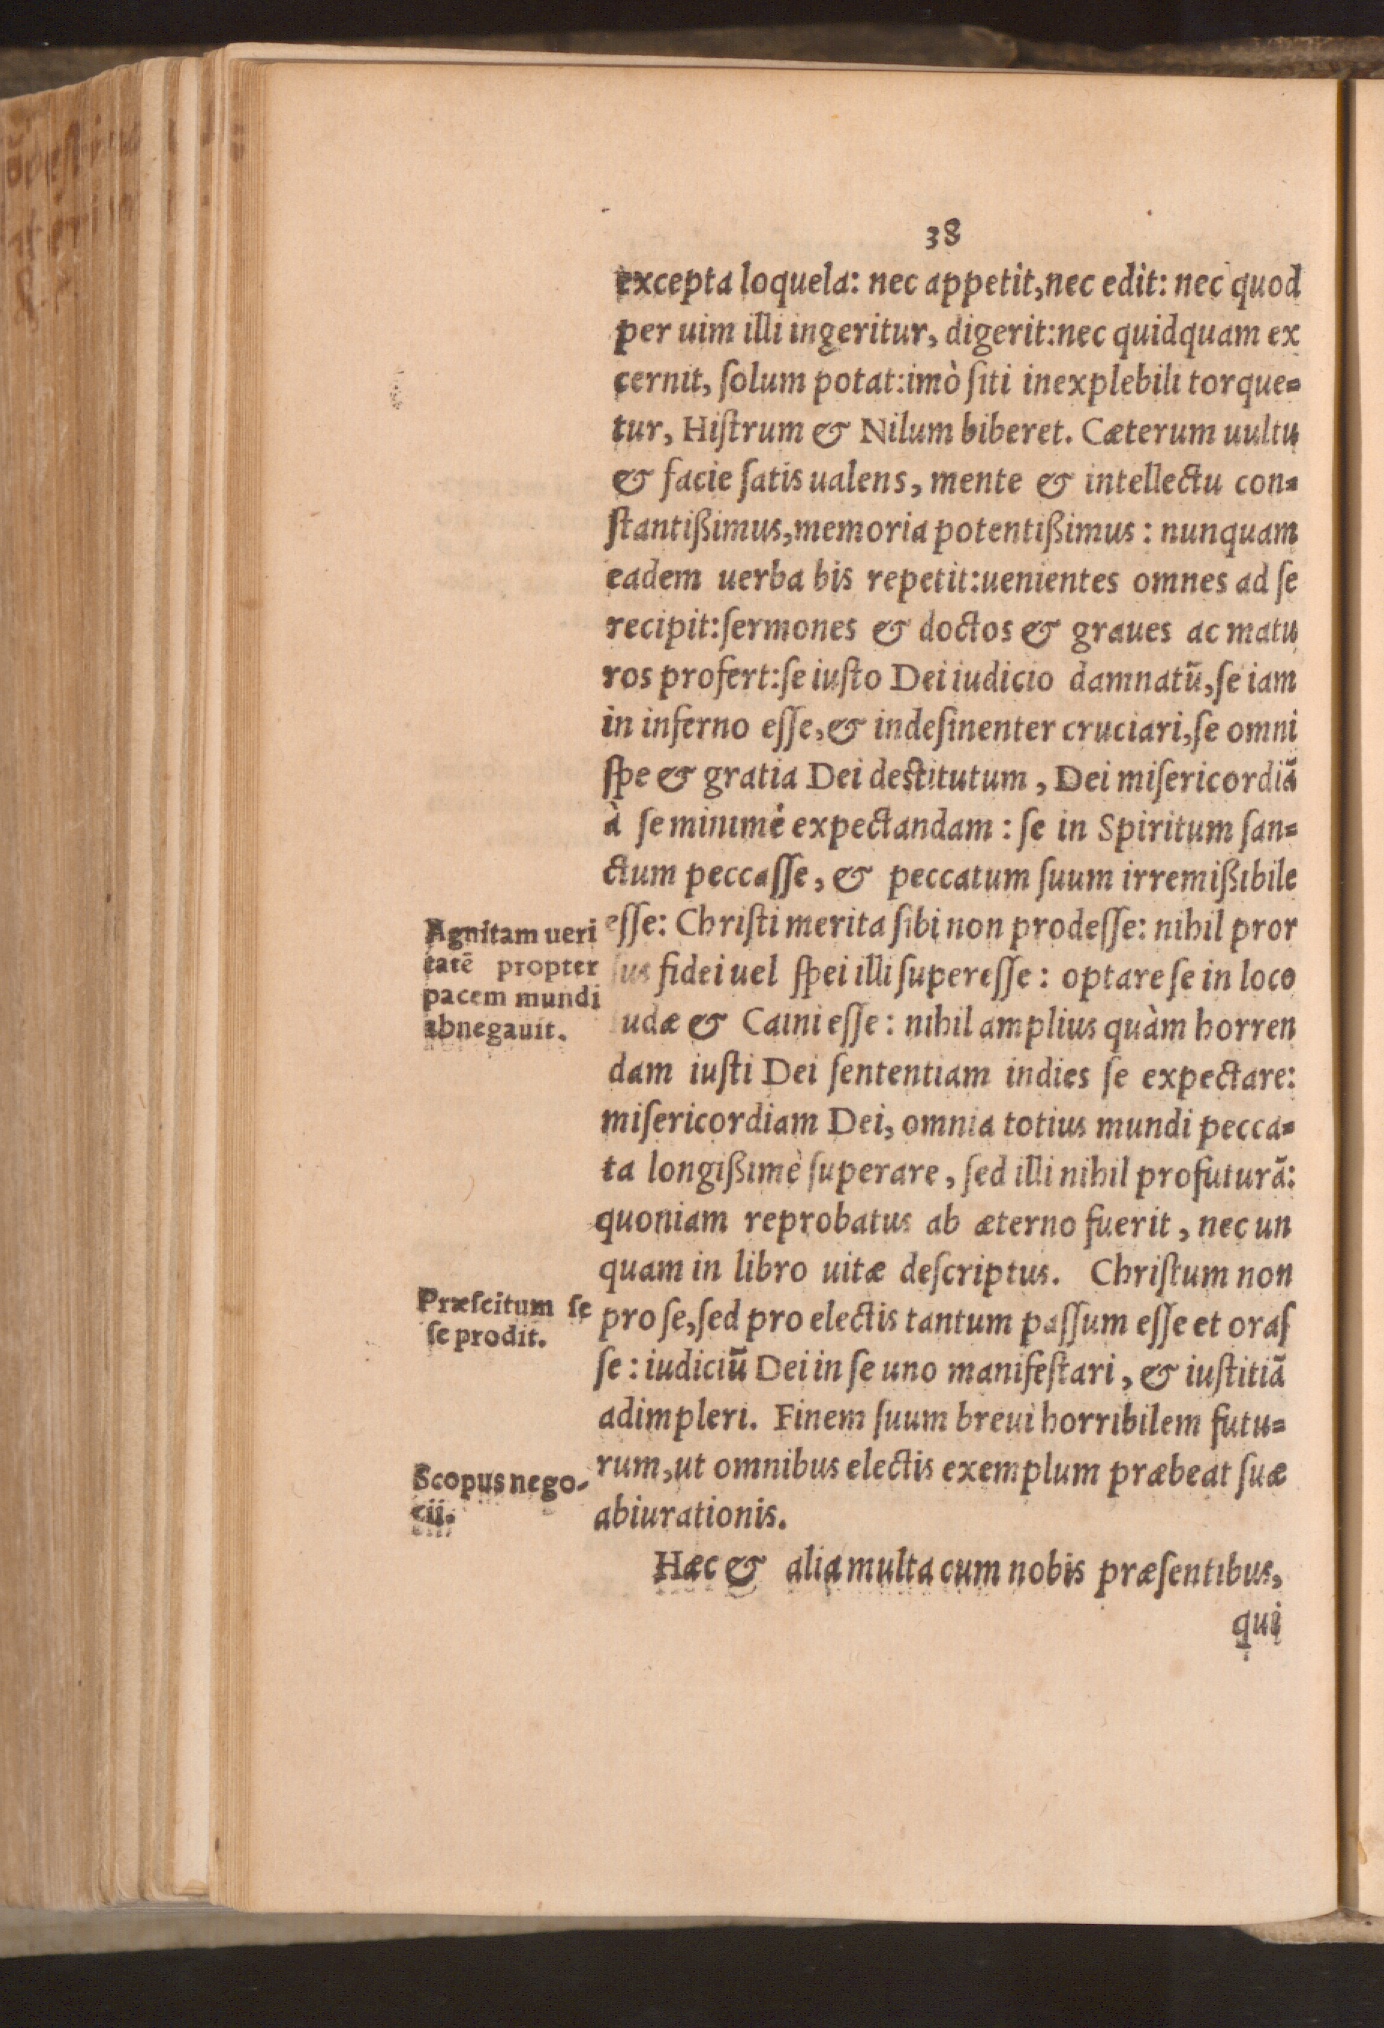 38
excepta loquela: nec appetit, nec edit: nec quod
per uim illi ingeritur, digerit: nec quidquam ex
cernit, ſolum potat: imò ſiti inexplebili torque=
tur, Hiſtrum & Nilum biberet. Cæterum uultu
& facie ſatis ualens, mente & intellectu con=
ſtantißimus, memoria potentißimus: nunquam
eadem uerba bis repetit: uenientes omnes ad ſe
recipit: ſermones & doctos & graues ac matu
ros profert: ſe iuſto Dei iudicio damnatũ, ſe iam
in inferno eſſe, & indeſinenter cruciari, ſe omni
ſpe & gratia Dei deſtitutum, Dei miſericordiã
à ſe minimè expectandam: ſe in Spiritum ſan=
ctum peccaſſe, & peccatum ſuum irremißibile
eſſe: Chriſti merita ſibi non prodeſſe: nihil pror
ſus fidei uel ſpei illi ſupereſſe: optare ſe in loco
Iudæ & Caini eſſe: nihil amplius quàm horren
dam iuſti Dei ſententiam indies ſe expectare:
miſericordiam Dei, omnia totius mundi pecca=
ta longißimè ſuperare, ſed illi nihil profuturã:
quoniam reprobatus ab æterno fuerit, nec un
quam in libro uitæ deſcriptus. Chriſtum non
pro ſe, ſed pro electis tantum paſſum eſſe et oraſ
ſe: iudiciũ Dei in ſe uno manifeſtari, & iuſtitiã
adimpleri. Finem ſuum breui horribilem futu=
rum, ut omnibus electis exemplum præbeat ſuæ
abiurationis.
Hæc & alia multa cum nobis præſentibus,
qui
Agnitam ueri
tatẽ propter
pacem mundi
abnegauit.
Præſcitum ſe
ſe prodit.
Scopus nego-
cii.